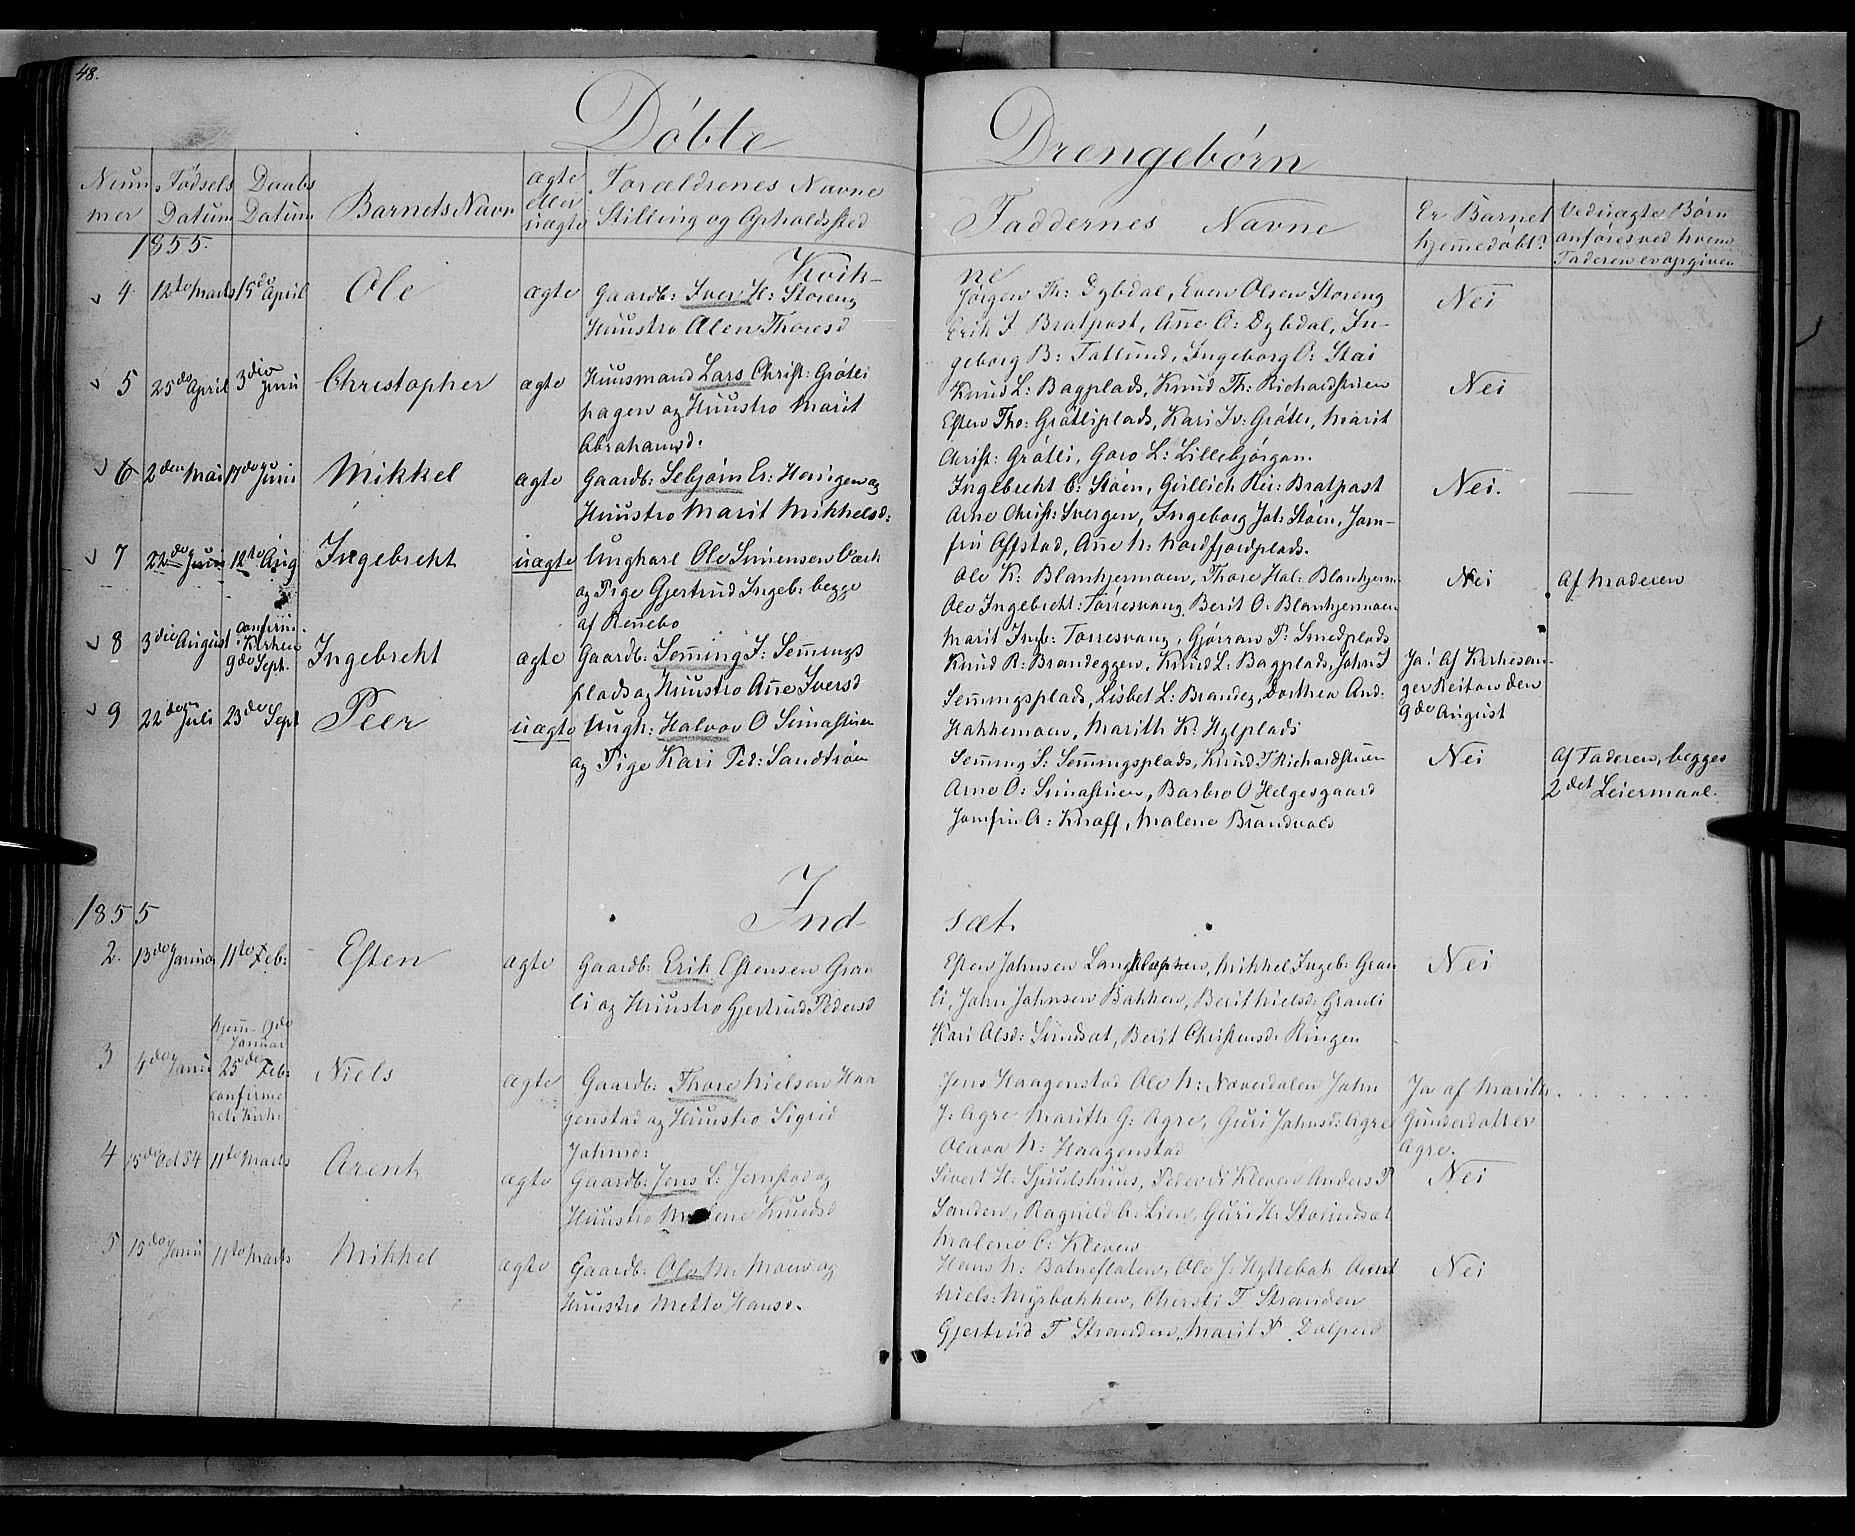 48.
Döbte
Drengebörn
Num mer
Födsels Datum
Daabs Datum
Barnets Navn
ægte eller uægte
Forældrenes Navne
Stilling og Opholdssted
Faddernes Navne
Er Barnet hjemedöbt?
Ved uægte Börn anföres ved hvem Faderen er opgiven
1855.
Kvik-
ne
4 12te Marts 15de April Ole ægte Gaardb: Iver H: Storeng
Huustro Alen Thoresd
Jörgen Th: Dybdal, Even Olsen Storeng
Erik J Bratpast, Ane O: Dybdal, In-
geborg B: Tallund, Ingeborg O: Stai
Nei
5 25de April 3die Juni Christopher ægte Huusmand Lars Christ: Grötli
hagen og Huustro Marit
Abrahamsd:
Knud L: Bagplads, Knud Th: Richardstuen
Esten Tho: Grötliplads, Kari Iv: Grötli, Marit
Christ: Grötli, Goro L: Lillebjörgan.
Nei
6 2den Mai 17de Juni Mikkel ægte Gaardb: Sebjörn Er: Hernigen og
Huustro Marit Mikkelsd:
Ingebrecht C: Stöen, Gullich Rei: Bratpast
Arne Christ: Svergen, Ingeborg Joh: Stöen, Jom-
fru Affstad, Ane N: Nordfjordplads.
Nei.
7 22de Juni 12te Aug Ingebreht uægte Ungkarl Ole Simensen Værk
og Pige Gjertrud Ingeb: begge
af Renebo
Ole K: Blankjermoen, Thore Hal: Blankjerm
Ole Ingebreht: Torresvang, Berit O: Blankjermoen
Marit Ingb: Torresvang, Gjörran P: Smedplads
Nei
Af Moderen
8 3die August confirm: i Kirken 9de Sept. Ingebreht ægte Gaardb: Seming J: Semings
plads og Huustro Ane Iversd
Knud R: Brandeggen, Knud L: Bagplads, John J
Semingsplads, Lisbet L: Brandeg, Dorthea And:
Hakkemoen, Marith K: Hylplads
Ja! Af Kirkesan-
ger Reitan den
9de August
9 22den Juli 23de Sept Peer uægte Ungk: Halvor O Simastuen
og Pige Kari Ped: Sandtröen
Seming S: Semingsplads, Knud T Richardstuen
Arne O: Simastuen, Barbro O Helgesgaard
Jomfru A: Knoff, Malene Brandvold
Nei
Af Faderen, begges
2det Leiermaal.
1855
Ind-
sæt.
2. 13de Januar 11te Feb: Esten ægte Gaardb: Erik Estensen Gran
li og Huustro Gjertrud Pedersd
Esten Johnsen Langklopken, Mikkel Ingeb: Gran
li, John Johnsen Bakken, Berit Nielsd: Granli
Kari Olsd: Sundsat, Berit Christensd: Ringen
Nei
3 4de Janu hjem: 9de Januar 25de Feb: confirme ret i Kirk: Niels ægte Gaardb: Thore Nielsen Haa
genstad og Huustro Sigrid
Johnsd:
Jens Haagenstad Ole N: Næverdalen John
J: Agre Marith G: Agre, Guri Johnsd: Agre
Olava N: Haagenstad
Ja af Marith
Gunderdatter
Agre.
4 15de Oct 54 11te Marts Arent ægte Gaardb: Jens L: Jernstad og
Huustro Malene Knudsd
Sivert H: Sjuulshuus, Peder N Kleven Anders P
Sanden, Ragnild A: Lien, Guri H: Storindsæt
Malene C: Kleven
Nei
5 15de Janu 11te Marts Mikkel ægte Gaardb: Ole M: Moen og
Huustro Mette Hansd.
Hans N: Botneflaten, Ole J: Hyttebak Arent
Niels: Myrbakken, Chersti T Stranden
Gjertrud T Stranden, Marit P. Dolpen
Nei